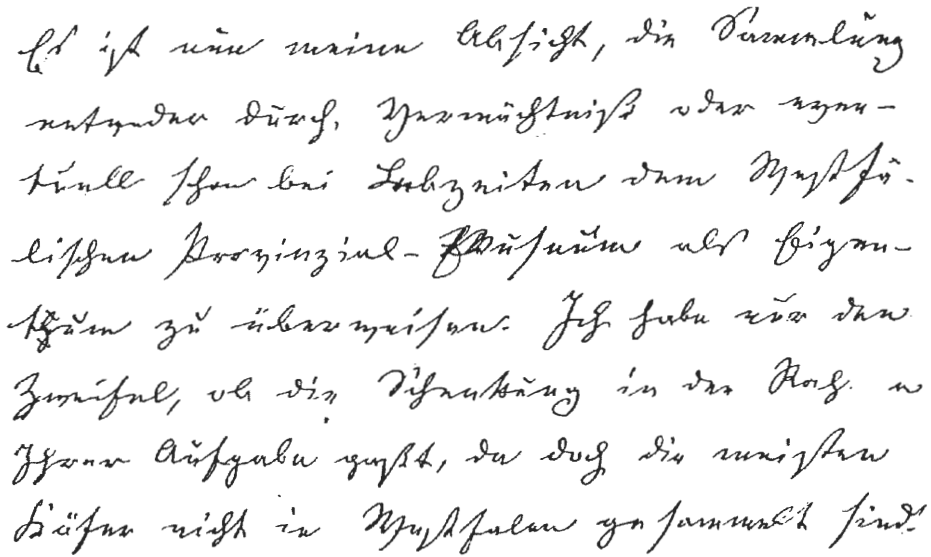 Es ist nun meine Absicht, die Sammlung
entweder durch Vermächtniß oder even-
tuell schon bei Lebzeiten dem Westfä-
lischen Provinzial-Museum als Eigen-
thum zu überweisen. Ich habe nur den
Zweifel, ob die Schenkung in den
Ihrer Aufgabe paßt, da doch die meisten
Käfer nicht in Westfalen gesammelt sind.